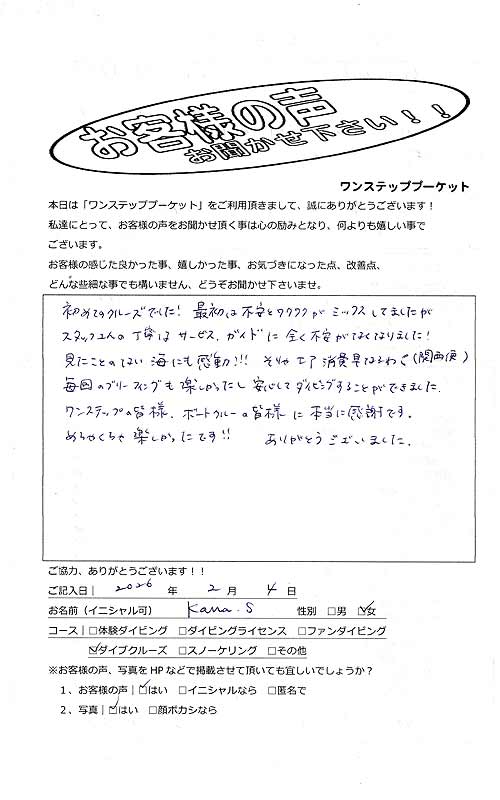 お客様の声
お聞かせ下さい！！
ワンステッププーケット
本日は「ワンステッププーケット」をご利用頂きまして、誠にありがとうございます！
私達にとって、お客様の声をお聞かせ頂く事は心の励みとなり、何よりも嬉しい事で
ございます。
お客様の感じた良かった事、嬉しかった事、お気づきになった点、改善点、
どんな些細な事でも構いません、どうぞお聞かせ下さいませ。
初めてのクルーズでした! 最初は不安とワクワクが ミックスしてましたが
スタッフさんの丁寧な サービス、ガイド に 全く不安がなくなりました!
見たことのない 海にも感動!!! そりゃ エア 消費早なるわぐ(関西便)
毎回のブリーフィングも 楽しかったし 安心して ダイビングすることができました.
ワンステップの皆様、ボートクルーの皆様 に 本当に感謝です。
めちゃくちゃ 楽しかったです!! ありがとうございました.
ご協力、ありがとうございます！！
ご記入日| 2026 年 2 月 4 日
お名前（イニシャル可） Kana.S 性別 □男 ☑女
コース| □体験ダイビング □ダイビングライセンス □ファンダイビング
☑ダイブクルーズ □スノーケリング □その他
※お客様の声、写真をHPなどで掲載させて頂いても宜しいでしょうか？
１、お客様の声| ☑はい □イニシャルなら □匿名で
２、写真| ☑はい □顔ボカシなら